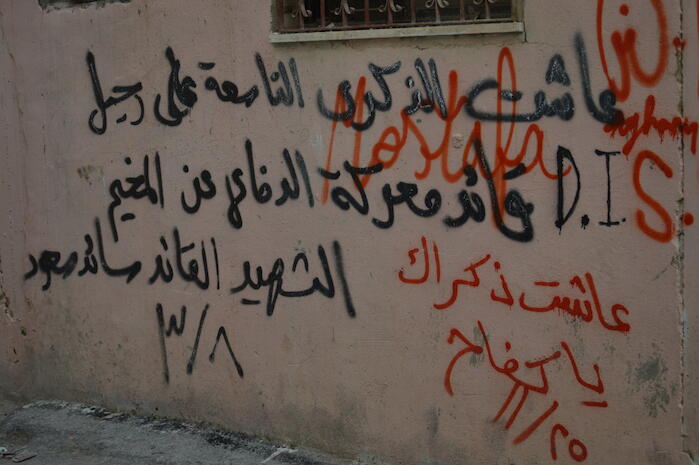 عاشت الذكرى التاسعة على رحيل
D.I.S.
قائد معركة الدفاع عن المخيم
الشهيد القائد سائد سعود
٣/٨
عاشت ذكراك
يا كفاح
١١/٢٥